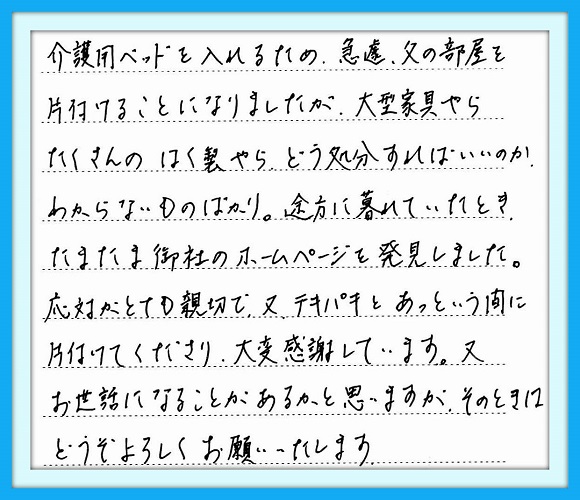 介護用ベッドを入れるため、急遽、父の部屋を
片付けることになりましたが、大型家具やら
たくさんの はく製やら、どう処分すればいいのか、
わからないものばかり。途方に暮れていたとき、
たまたま御社のホームページを発見しました。
応対がとても親切で、又、テキパキと あっという間に
片付けてくださり、大変感謝しています。又
お世話になることがあるかと思いますが、そのときは
どうぞよろしくお願いいたします。